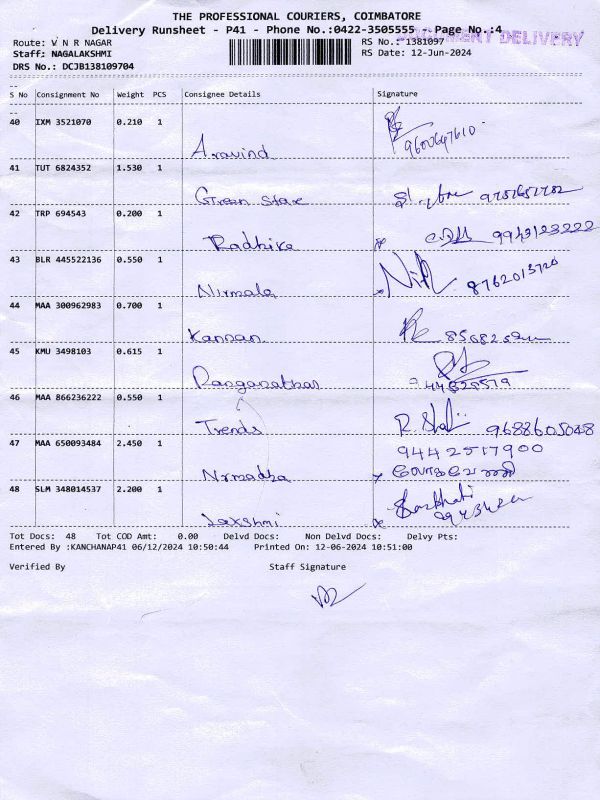 THE PROFESSIONAL COURIERS, COIMBATORE
Delivery Runsheet - P41 - Phone No.:0422-3505555 - Page No.:4
DOCUMENT DELIVERY
Route: V N R NAGAR
RS No.: 1381097
Staff: NAGALAKSHMI
RS Date: 12-Jun-2024
DRS No.: DCJB138109704
S No Consignment No Weight PCS Consignee Details Signature
40 IXM 3521070 0.210 1
Aravind 9600647610
41 TUT 6824352 1.530 1
Green Stare 9751651782
42 TRP 694543 0.200 1
Radhika 9943123222
43 BLR 445522136 0.550 1
Nirmala 8762013720
44 MAA 300962983 0.700 1
Kannan
45 KMU 3498103 0.615 1
Ranganathan
46 MAA 866236222 0.550 1
Trends 9688605048
47 MAA 650093484 2.450 1
9442517900
Nirmadha
48 SLM 348014537 2.200 1
Lakshmi
Tot Docs: 48 Tot COD Amt: 0.00 Delvd Docs: Non Delvd Docs: Delvy Pts:
Entered By :KANCHANAP41 06/12/2024 10:50:44 Printed On: 12-06-2024 10:51:00
Verified By Staff Signature